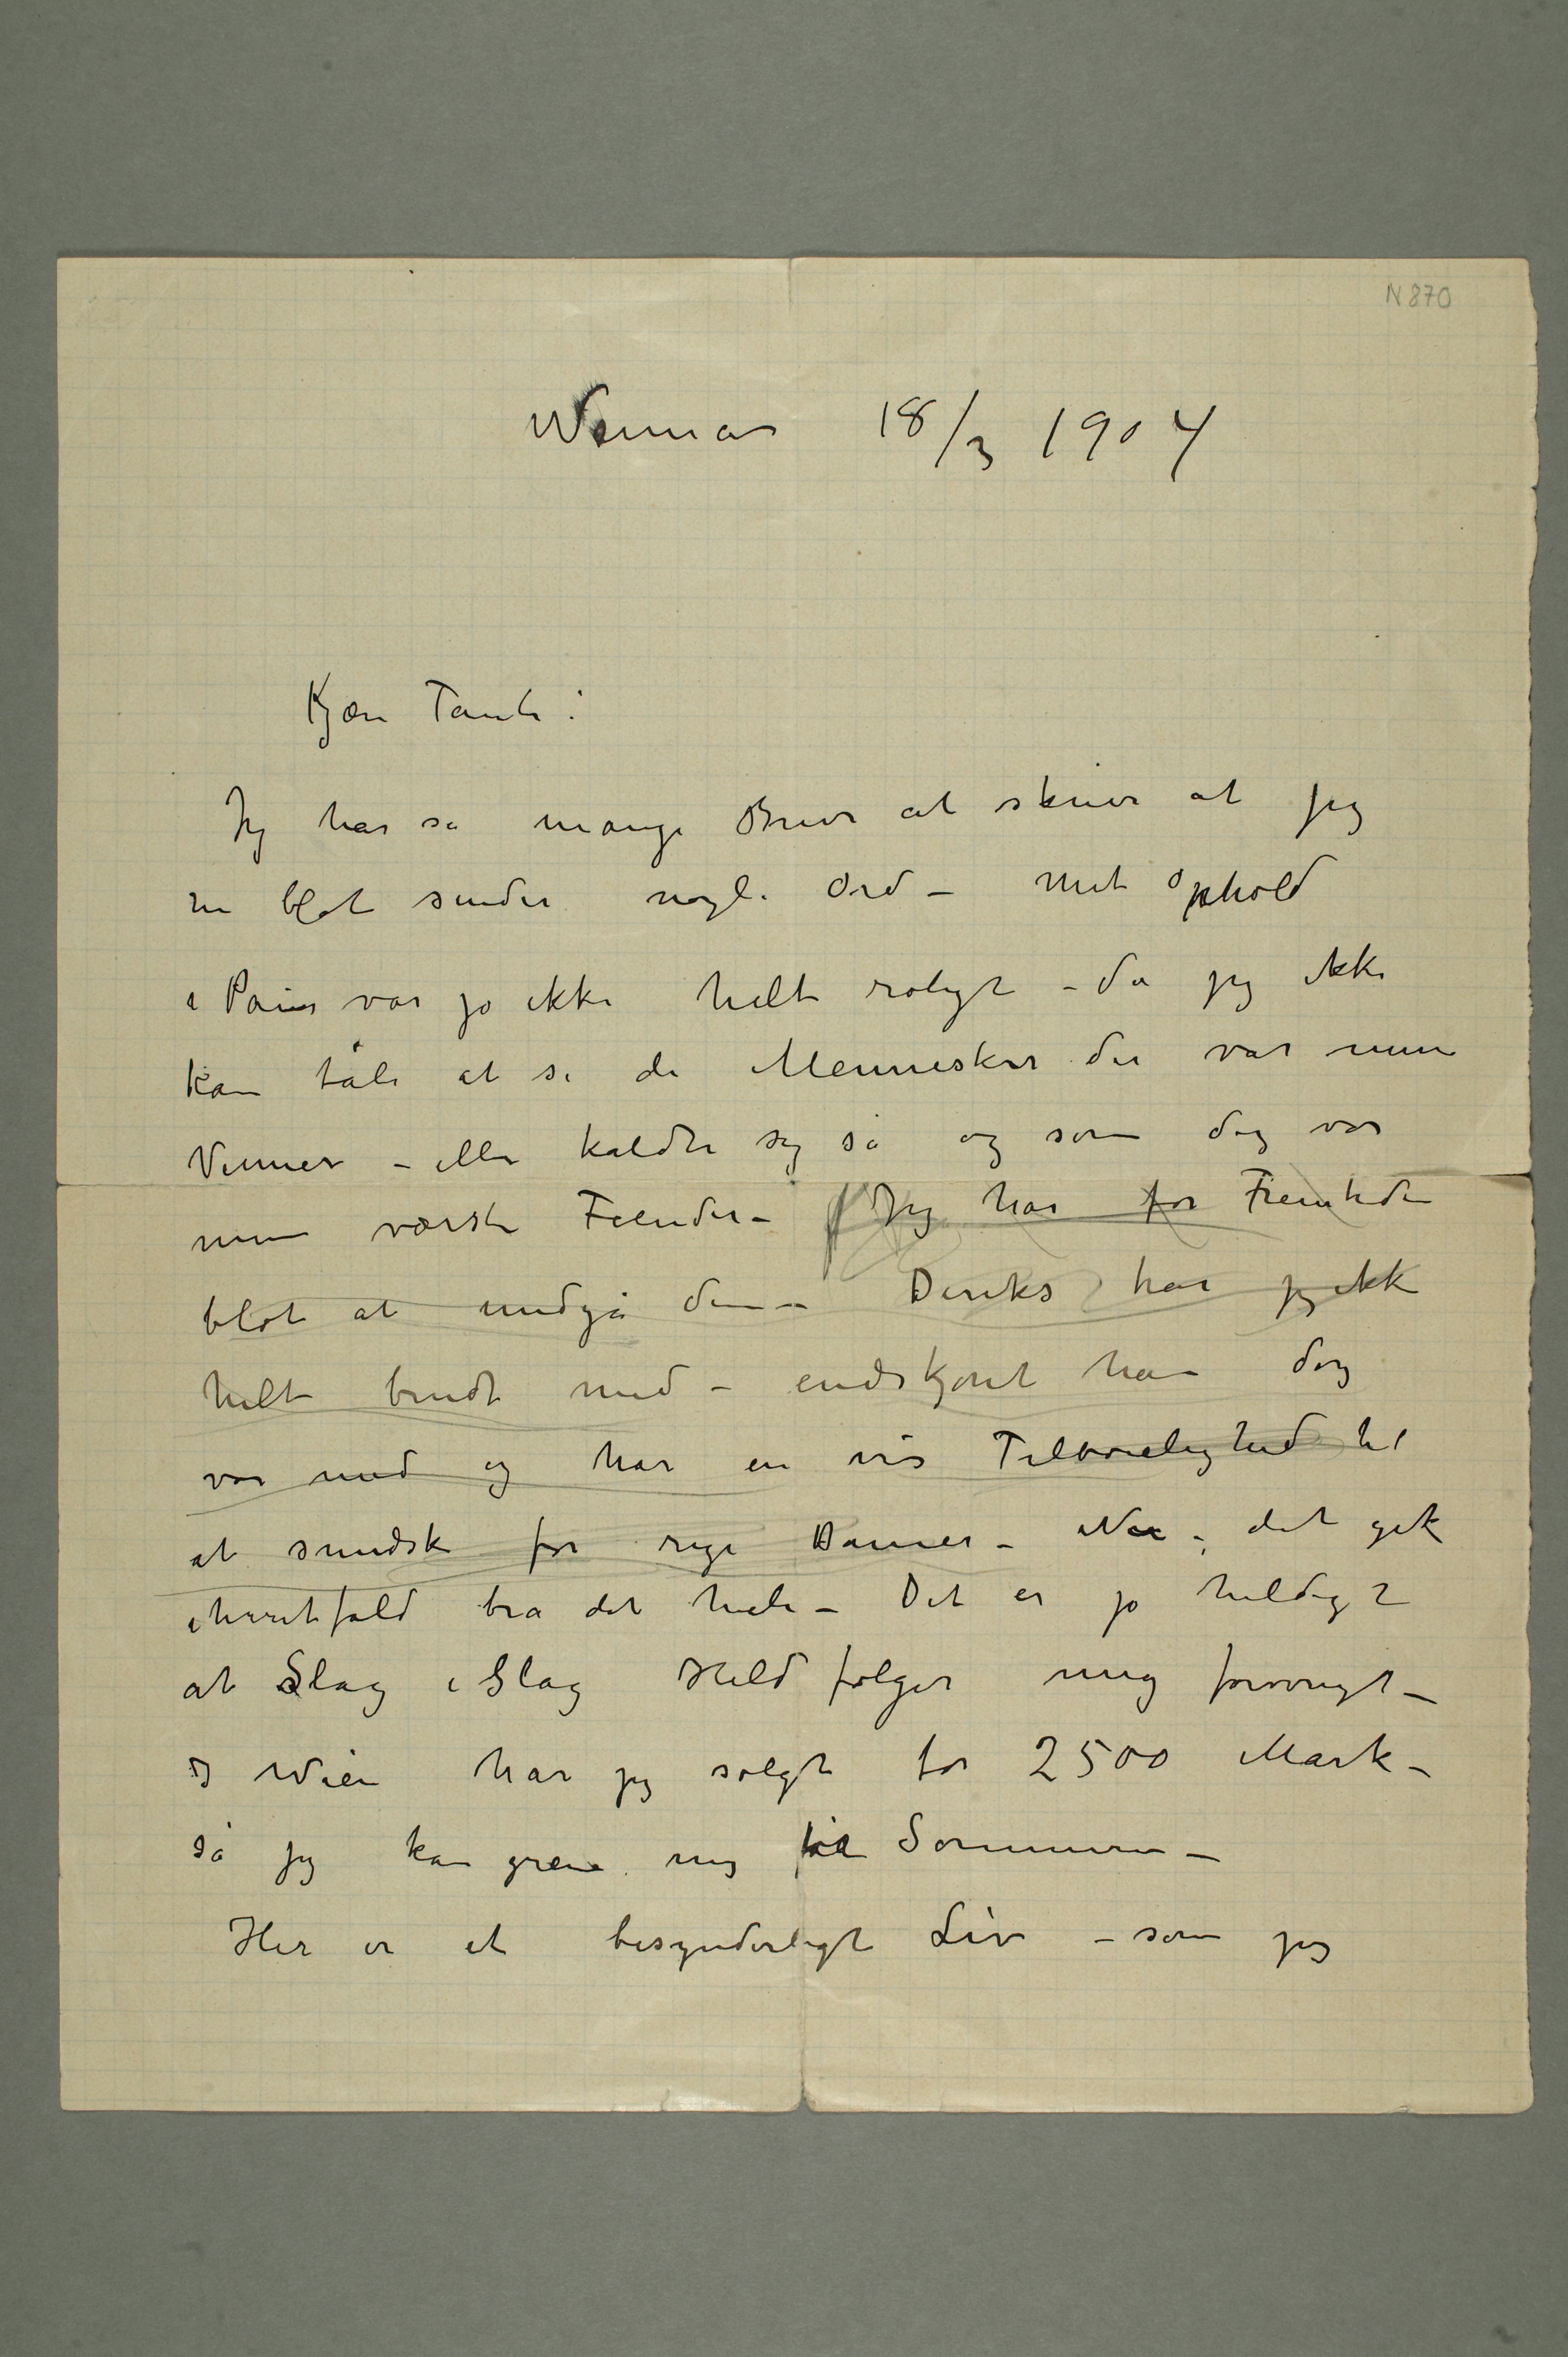 N 870
Weimar 18/3 1904
Kjære Tante!
Jeg har så mange Breve at skrive at jeg
nu blot sender nogle Ord – Mit Ophold
i Paris var jo ikke helt roligt – da jeg ikke
kan tåle at se de Mennesker der var mine
Venner – eller kaldte sig så og som dog var
mine værste Fiender – Jeg har for Fremtiden
blot at undgå dem – Diriks har jeg ikke
helt brudt med – endskjønt han dog
var med og har en vis Tilbøielighed til
at smidske for rige Damer – Nå – det gik
ihvertfald bra det hele – Det er jo heldigt
at Slag i Slag Held følger mig forøvrigt –
I Wien har jeg solgt for 2500 Mark –
så jeg kan greie mig til Sommeren –
Her er et besynderligt Liv – som jeg